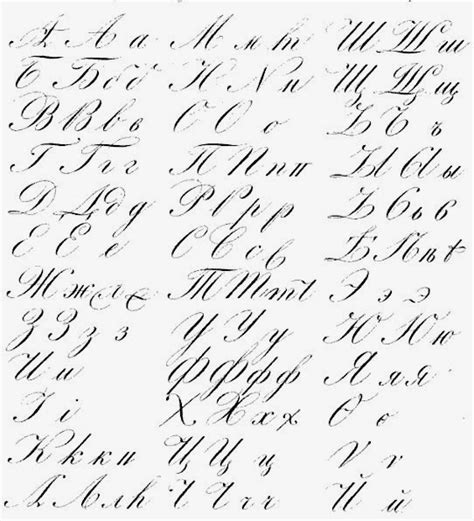 А А а М м т Ш Ш ш
Б Б б б Н N н Щ Щ щ
В В в в О О о Ъ Ъ ъ
Г Г г г П П п п Ы Ы ы
Д Д д д Р Р р р Ь Ь ь в
Е Е е С С с в Ѣ Ѣ ѣ ѣ
Ж ж Т Т т т Э э э
З З з з У У у Ю Ю ю
И и Ф Ф ф ф Я я я
І і Х Х х х Ѳ ѳ
К к к н Ц Ц ц Ѵ ѵ
Л Л л Ч Ч ч ч Й й